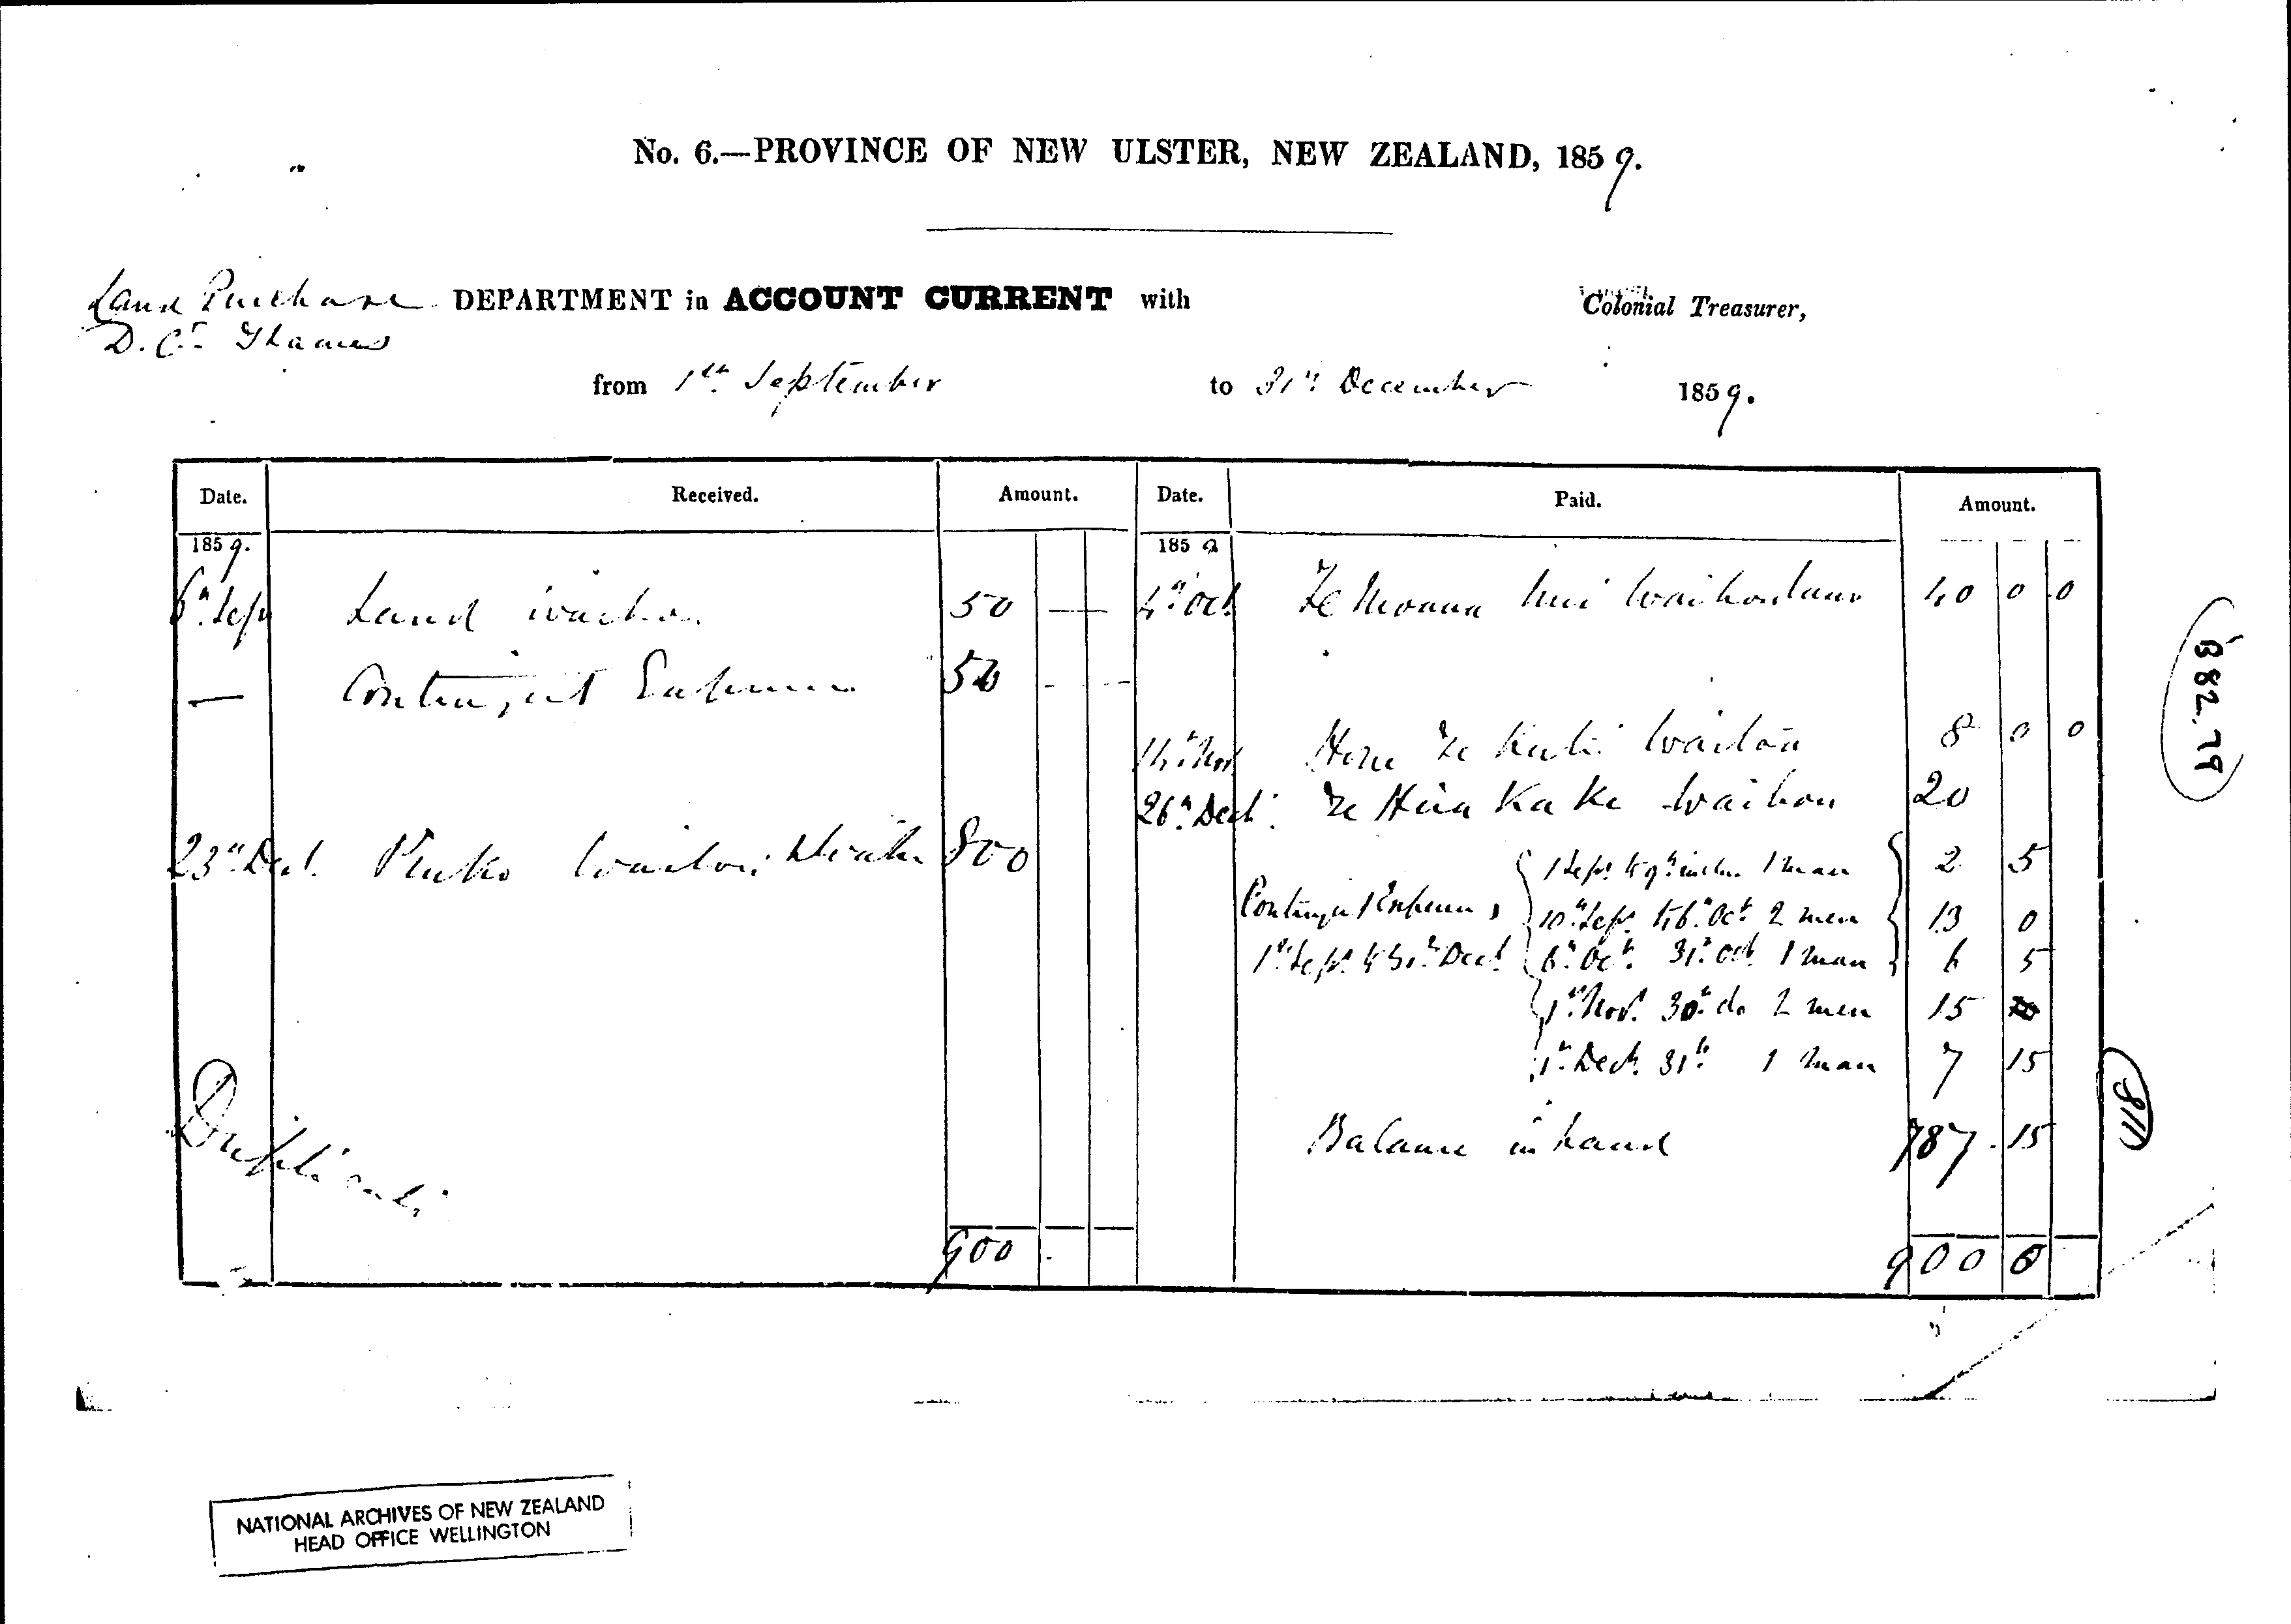 No. 6.—PROVINCE OF NEW ULSTER, NEW ZEALAND, 1859.
Land Purchase DEPARTMENT in ACCOUNT CURRENT with Colonial Treasurer,
D. Ct. Thames
from 1st September to 31st December 1859.
Date. Received. Amount. Date. Paid. Amount.
1859. 1859
6th Sep Land 50 — 4th Oct Te Moana hui 40 0 0
— Contingent Expenses 50 - -
14th Nov Te 8 0 0
26th Dec Te Hira Kake Waihou 20
23rd Dec. Piako 800
1 Sept to 9th inclu. 1 man 2 5
Contingent Expenses 10th Sept to 6th Oct 2 men 13 0
1st Sept to 31st Dec 6th Oct. 31st Oct 1 man 6 5
1st Nov. 30th do 2 men 15
1st Dec 31st 1 man 7 15
Duplicate
Balance in hand 787 . 15
900 . 900 0
B82.79
811
NATIONAL ARCHIVES OF NEW ZEALAND
HEAD OFFICE WELLINGTON